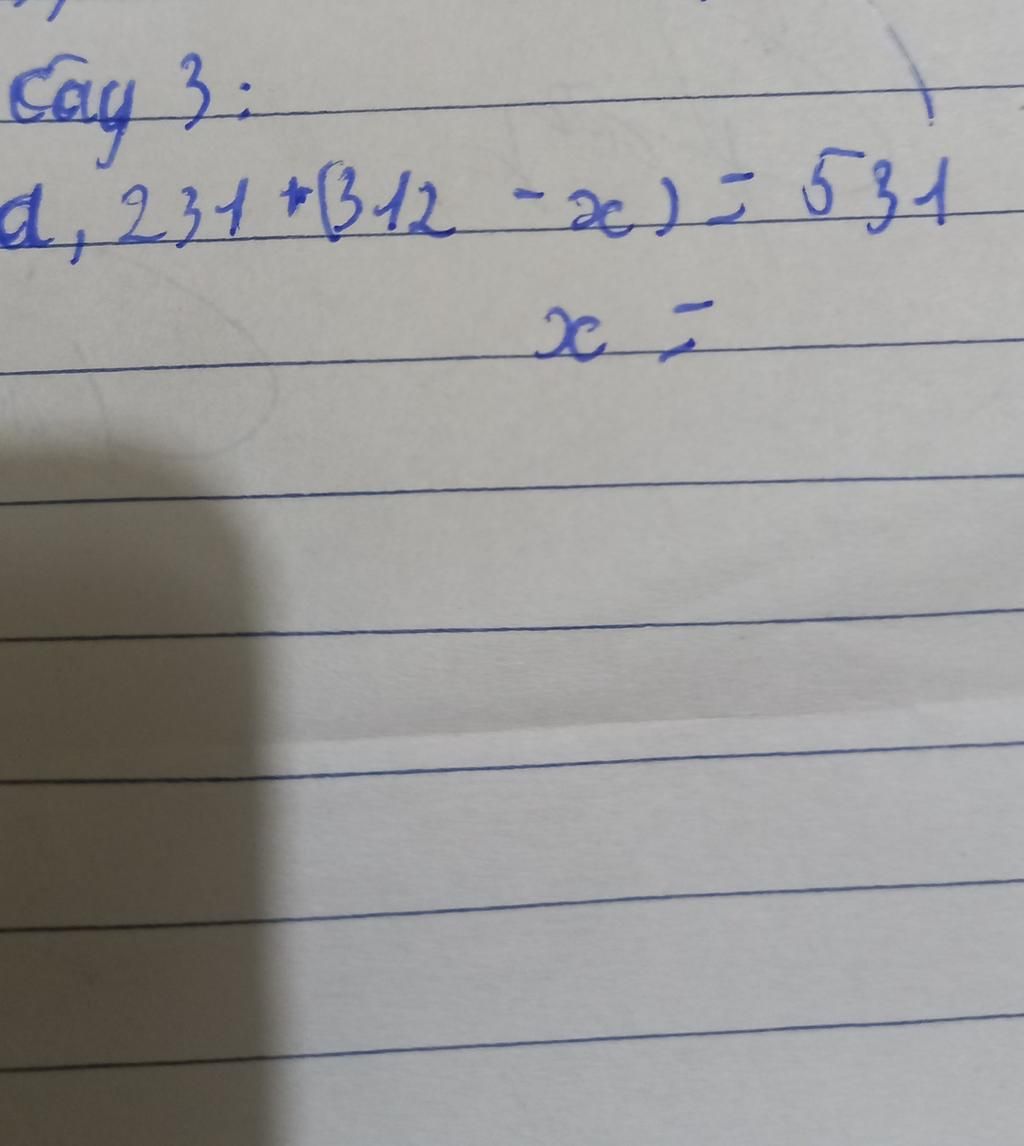 Câu 3:
a, 231 + (312 - x) = 531
x =